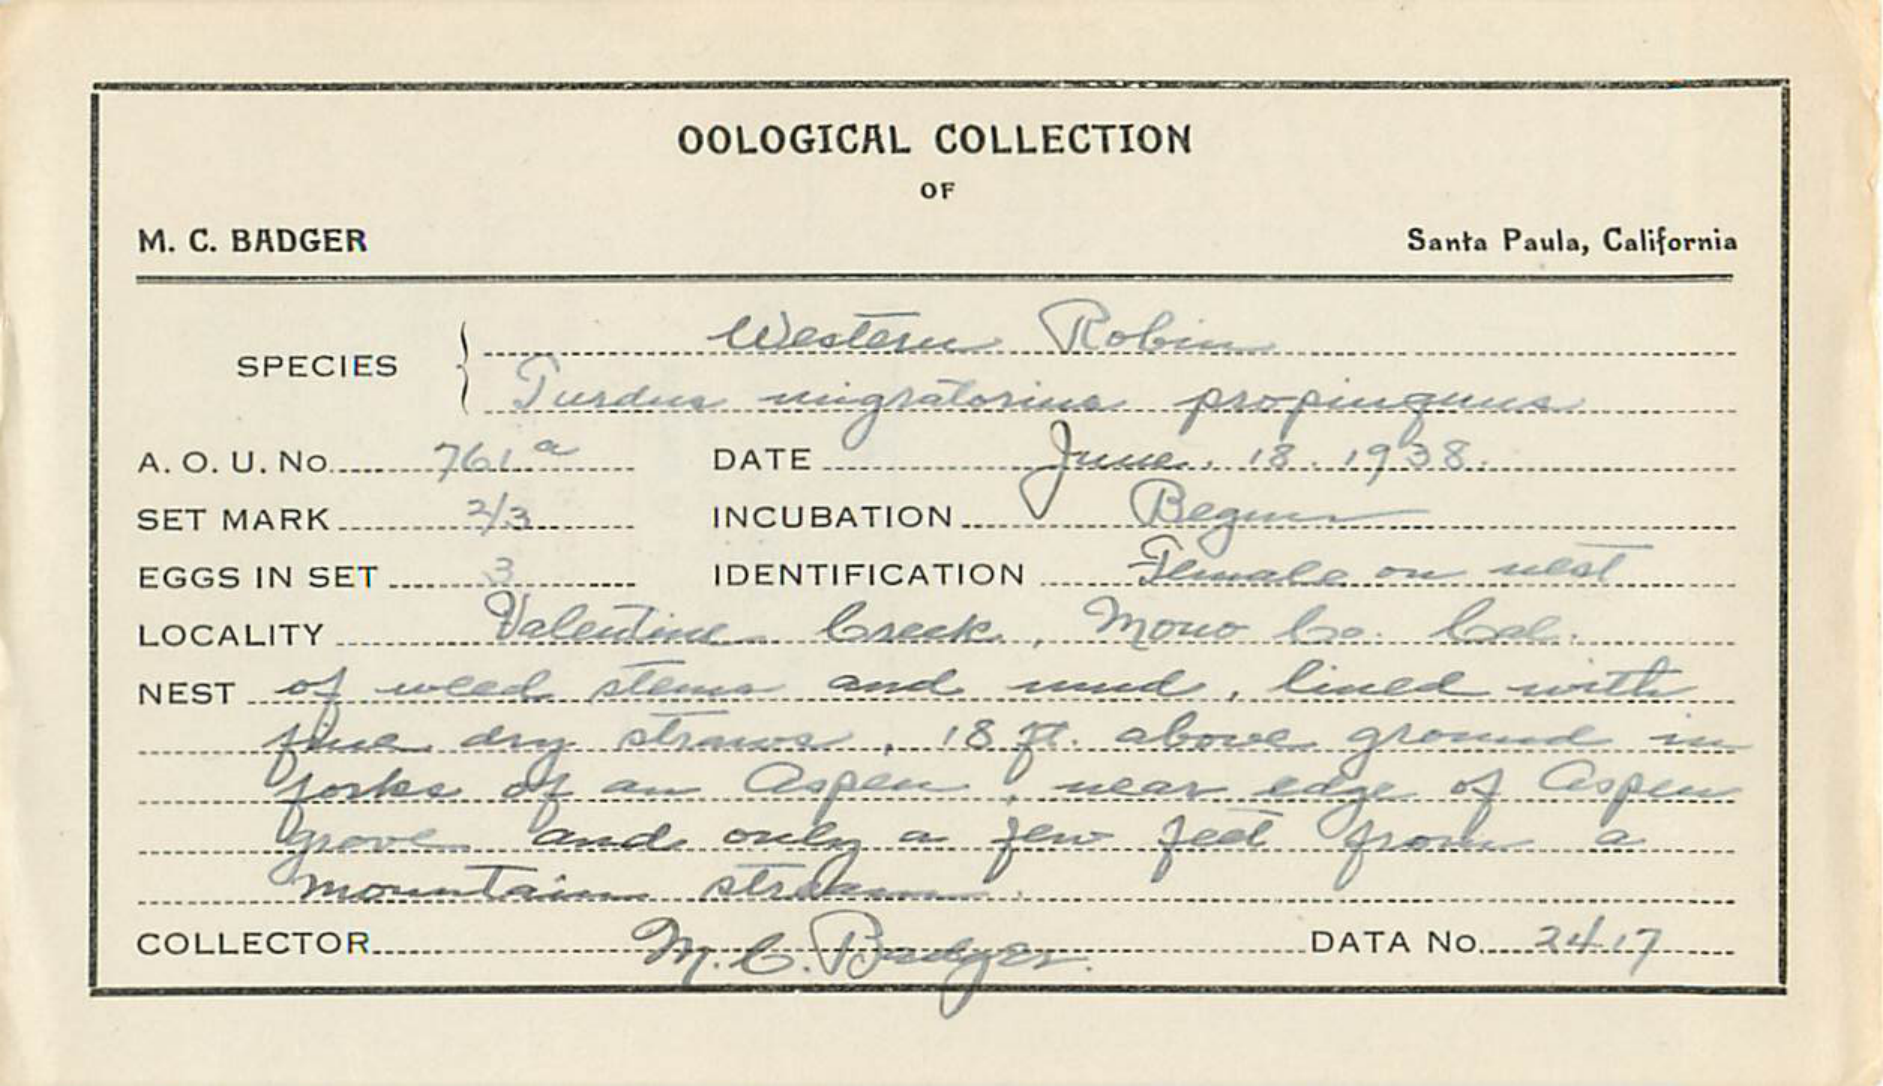 OOLOGICAL COLLECTION
OF
M. C. BADGER Santa Paula, California
SPECIES { Western Robin
Turdus migratorius propinquus
A. O. U. No. 761a DATE June. 18. 1938.
SET MARK 2/3 INCUBATION Begun
EGGS IN SET 3 IDENTIFICATION Female on nest
LOCALITY Valentine Creek, Mono Co. Cal.
NEST of weed stems and mud, lined with
fine dry straws, 18 ft. above ground in
forks of an Aspen, near edge of Aspen
grove and only a few feet from a
mountain stream.
COLLECTOR M. C. Badger. DATA No. 2417